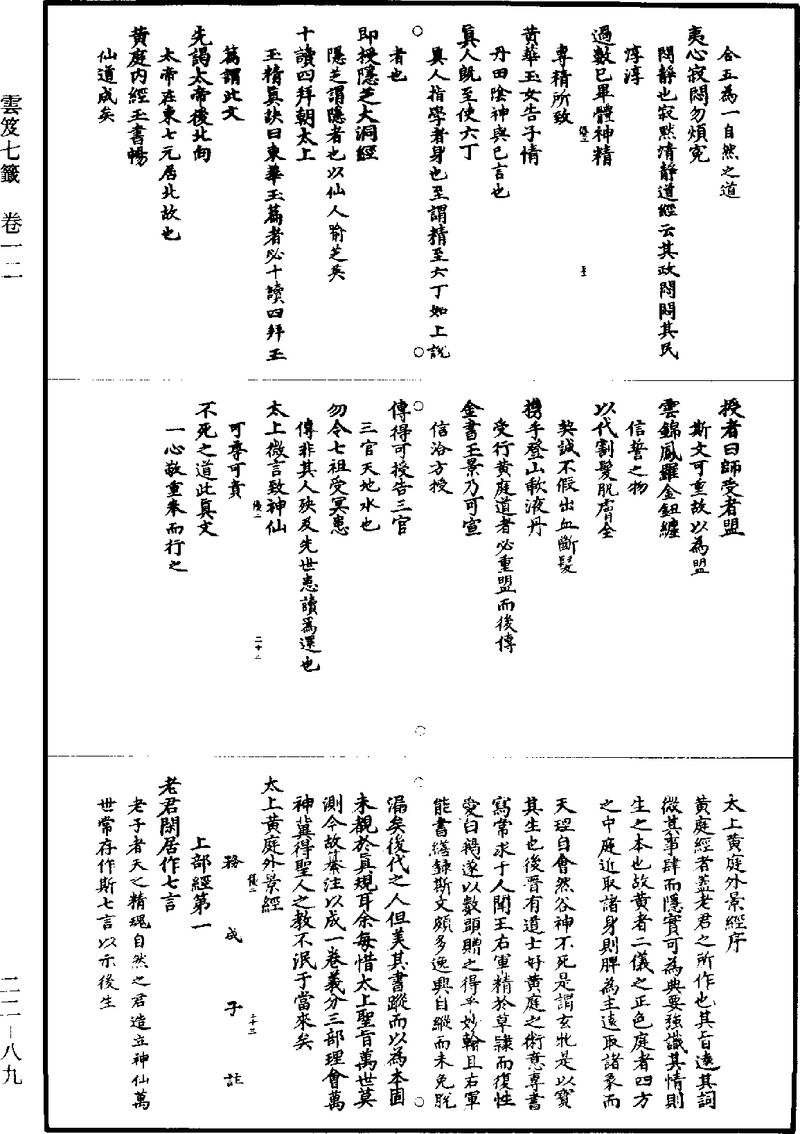 雲笈七籤 卷一二
二二－八九
合五為一自然之道
夷心寂悶勿煩冤
悶靜也寂默清靜道經云其政悶悶其民
淳淳
過數已畢體神精
專精所致
黃華玉女告子情
丹田陰神與已言也
真人既至使六丁
真人指學者身也至謂精至六丁如上說
者也
即授隱芝大洞經
隱芝謂隱者也以仙人喻芝英
十讀四拜朝太上
玉精真訣曰東華玉篇者必十讀四拜玉
篇謂此文
先謁太帝後北向
太帝在東七元居北故也
黃庭內經玉書暢
仙道成矣
授者曰師受者盟
斯文可重故以為盟
雲錦鳳羅金鈕纏
信誓之物
以代割髮肌膚全
契誠不假出血斷髮
攜手登山歃液丹
受行黃庭道者必重盟而後傳
金書玉景乃可宣
信洽方授
傳得可授告三官
三官天地水也
勿令七祖受冥患
傳非其人殃及先世患讀為還也
太上微言致神仙
可尊可貴
二十二
不死之道此真文
一心敬重奉而行之
太上黃庭外景經序
黃庭經者蓋老君之所作也其旨遠其詞
微其事肆而隱實可為典要強識其情則
生之本也故黃者二儀之正色庭者四方
之中庭近取諸身則脾為主遠取諸象而
天理自會然谷神不死是謂玄牝是以寶
其生也後晉有道士好黃庭之術意專書
寫常求于人聞王右軍精於草隸而復性
愛白鵝遂以數頭贈之得乎妙翰且右軍
能書繕錄斯文頗多逸興自縱而未免脫
漏矣後代之人但美其書蹤而以為本固
未覩於真規耳余每惜太上聖旨萬世莫
測今故纂注以成一卷義分三部理會萬
神冀得聖人之教不泯于當來矣
太上黃庭外景經
二十三
務成子註
上部經第一
老君閑居作七言
老子者天之精魂自然之君造立神仙萬
世常存作斯七言以示後生